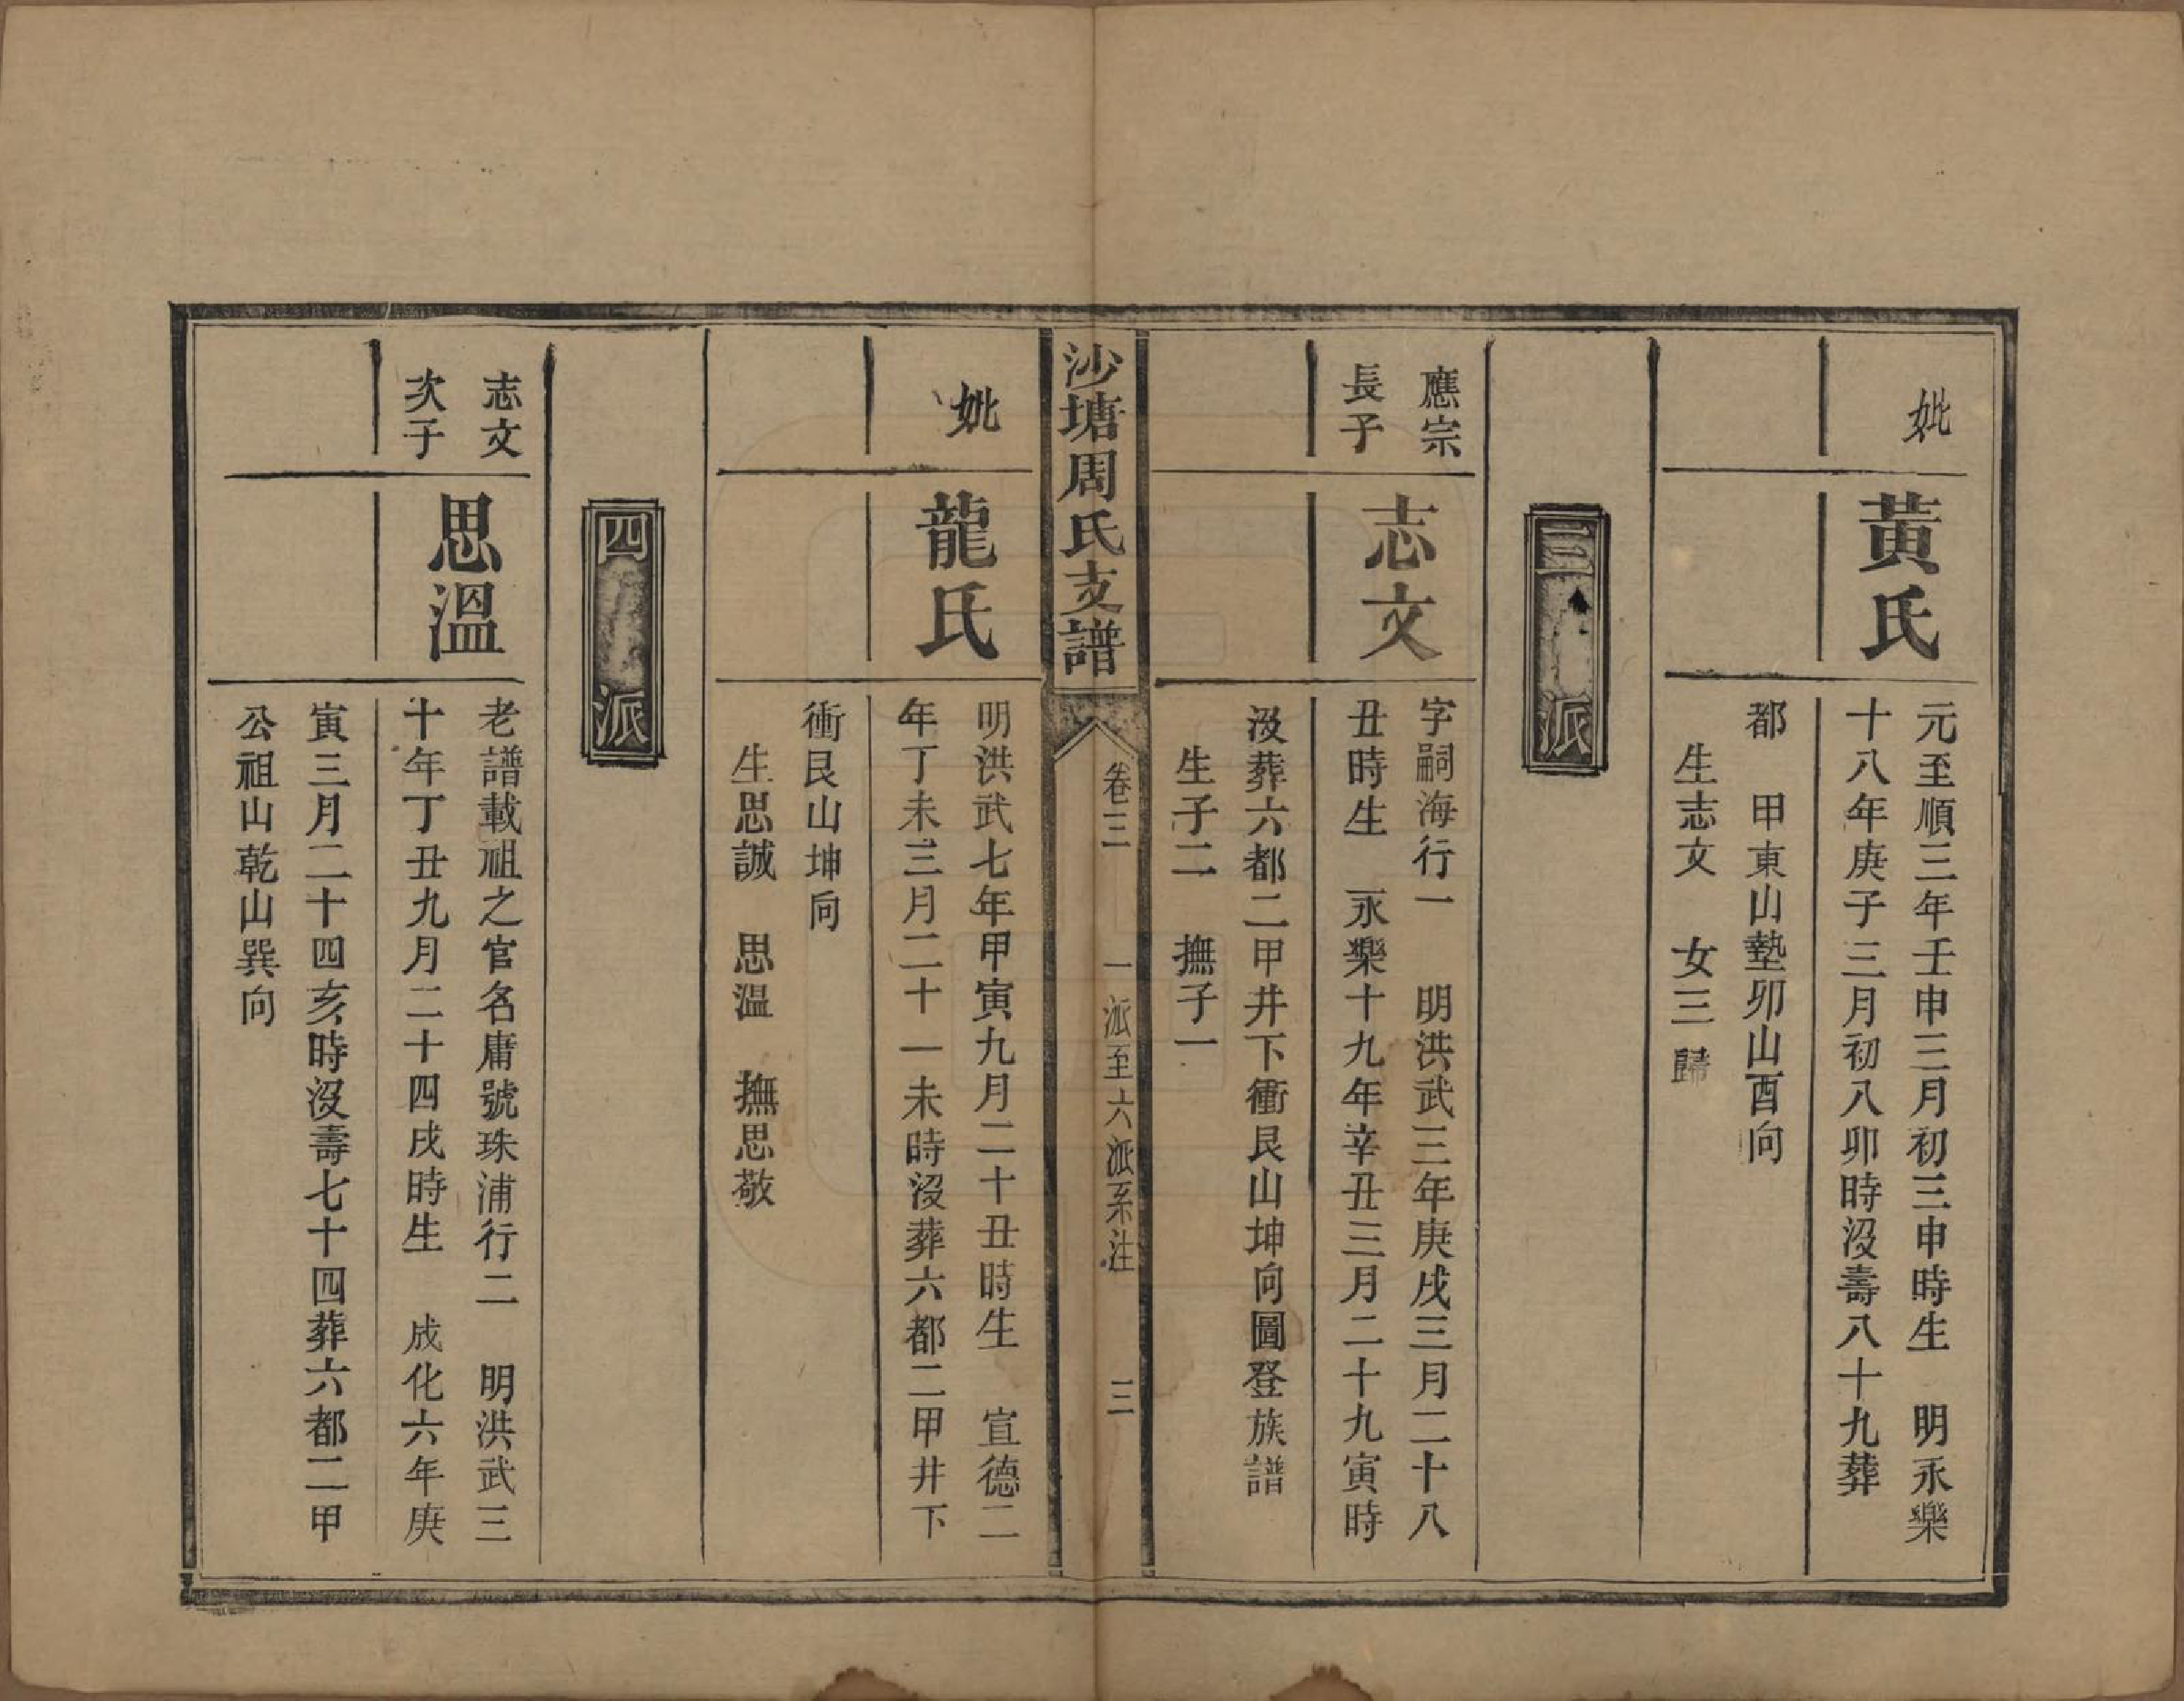 妣
黃氏
元至順三年壬申三月初三申時生　明永樂
十八年庚子三月初八卯時沒壽八十九葬
都　甲東山塾卯山酉向
生志文　女三歸
三派
應宗
長子
志文
字嗣海行一　明洪武三年庚戌三月二十八
丑時生　永樂十九年辛丑三月二十九寅時
沒葬六都二甲井下衝艮山坤向圖登族譜
生子二　撫子一
沙塘周氏支譜
卷三
一派至六派系注
三
妣
龍氏
明洪武七年甲寅九月二十丑時生　宣德二
年丁未三月二十一未時沒葬六都二甲井下
衝艮山坤向
生思誠　思溫　撫思敬
四派
志文
次子
思溫
老譜載祖之官名庸號珠浦行二　明洪武三
十年丁丑九月二十四戌時生　成化六年庚
寅三月二十四亥時沒壽七十四葬六都二甲
公祖山乾山巽向